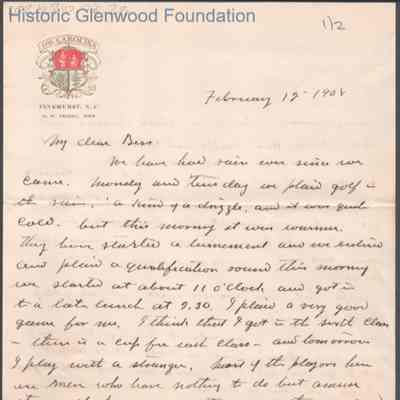 Historic Glenwood Foundation
1/2
THE CAROLINA
PINEHURST, N.C.
February 12 - 1908
My dear Bess:
We have had rain ever since we
came. Monday and Tuesday we plaid golf in
the rain, a kind of a drizzle, and it was quite
cold. but this morning it was warmer.
They have started a turnement and we entered
and plaid a qualification round this morning
we started at about 11 o'clock and got in
to a late lunch at 2.30. I plaid a very good
game for me. I think that I got in the sixth class
- there is a cup for each class - and tomorrow
I play with a stranger. Most of the players here
are men who have nothing to do but amuse